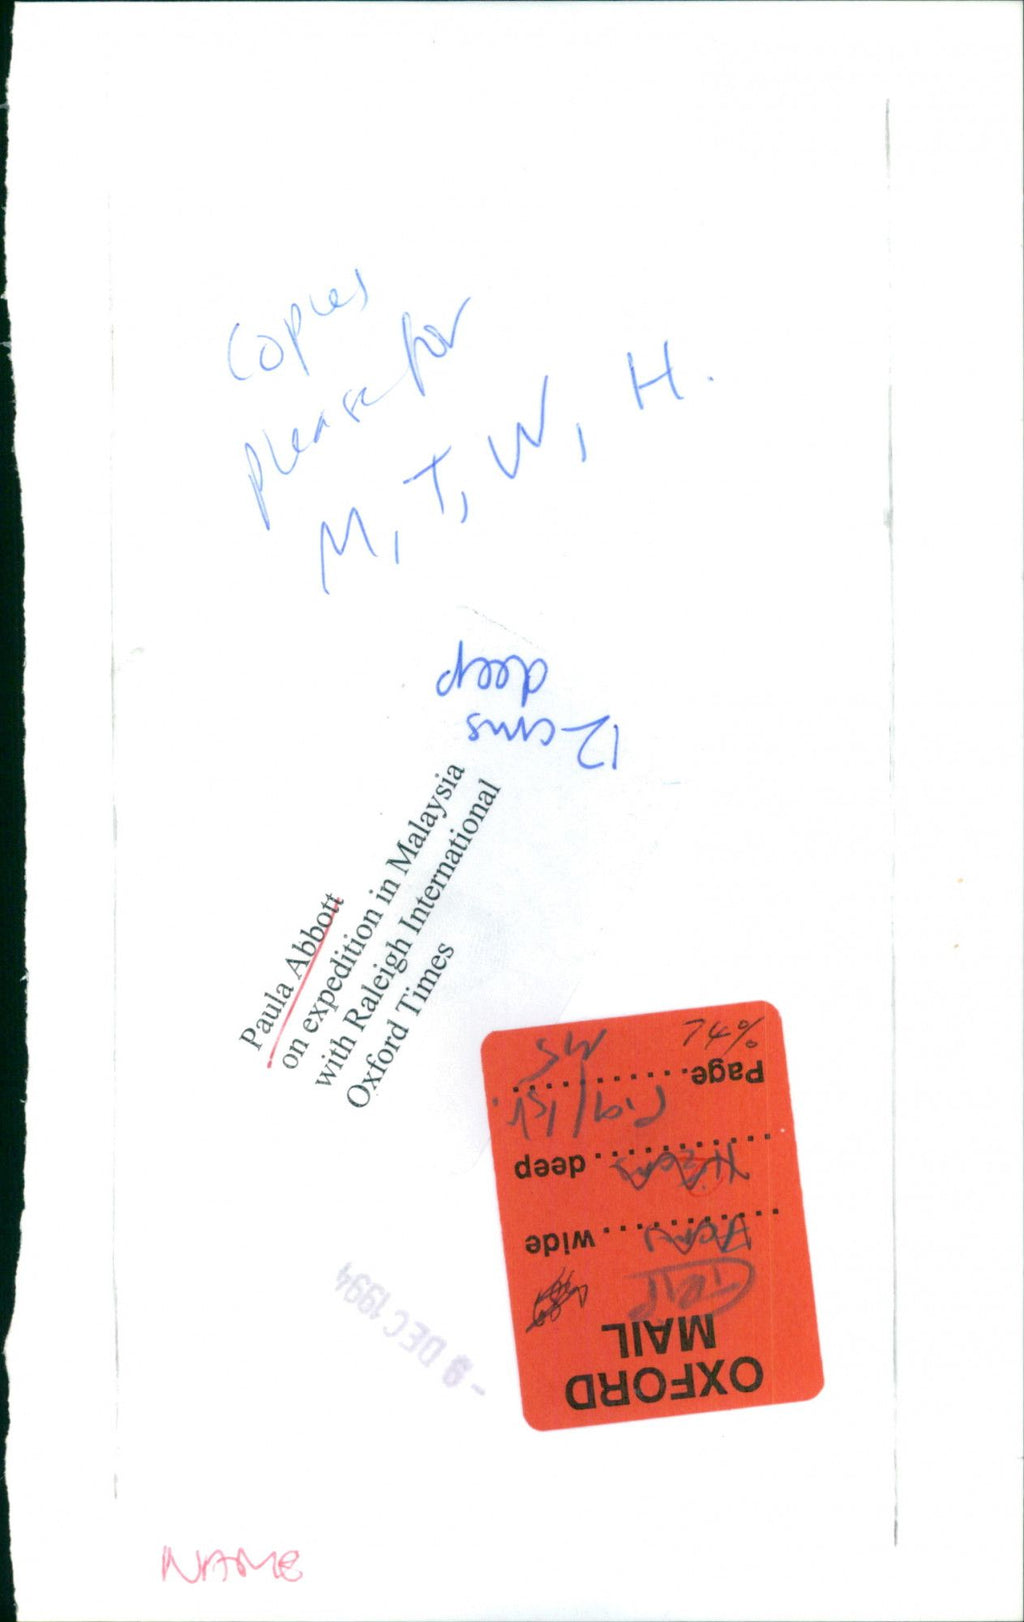 Copies
please for
M, T, W, H.
12 cms
deep
Paula Abbott
on expedition in Malaysia
with Raleigh International
Oxford Times
- 9 DEC 1994
OXFORD
MAIL
wide
deep
Page
74%
NAME